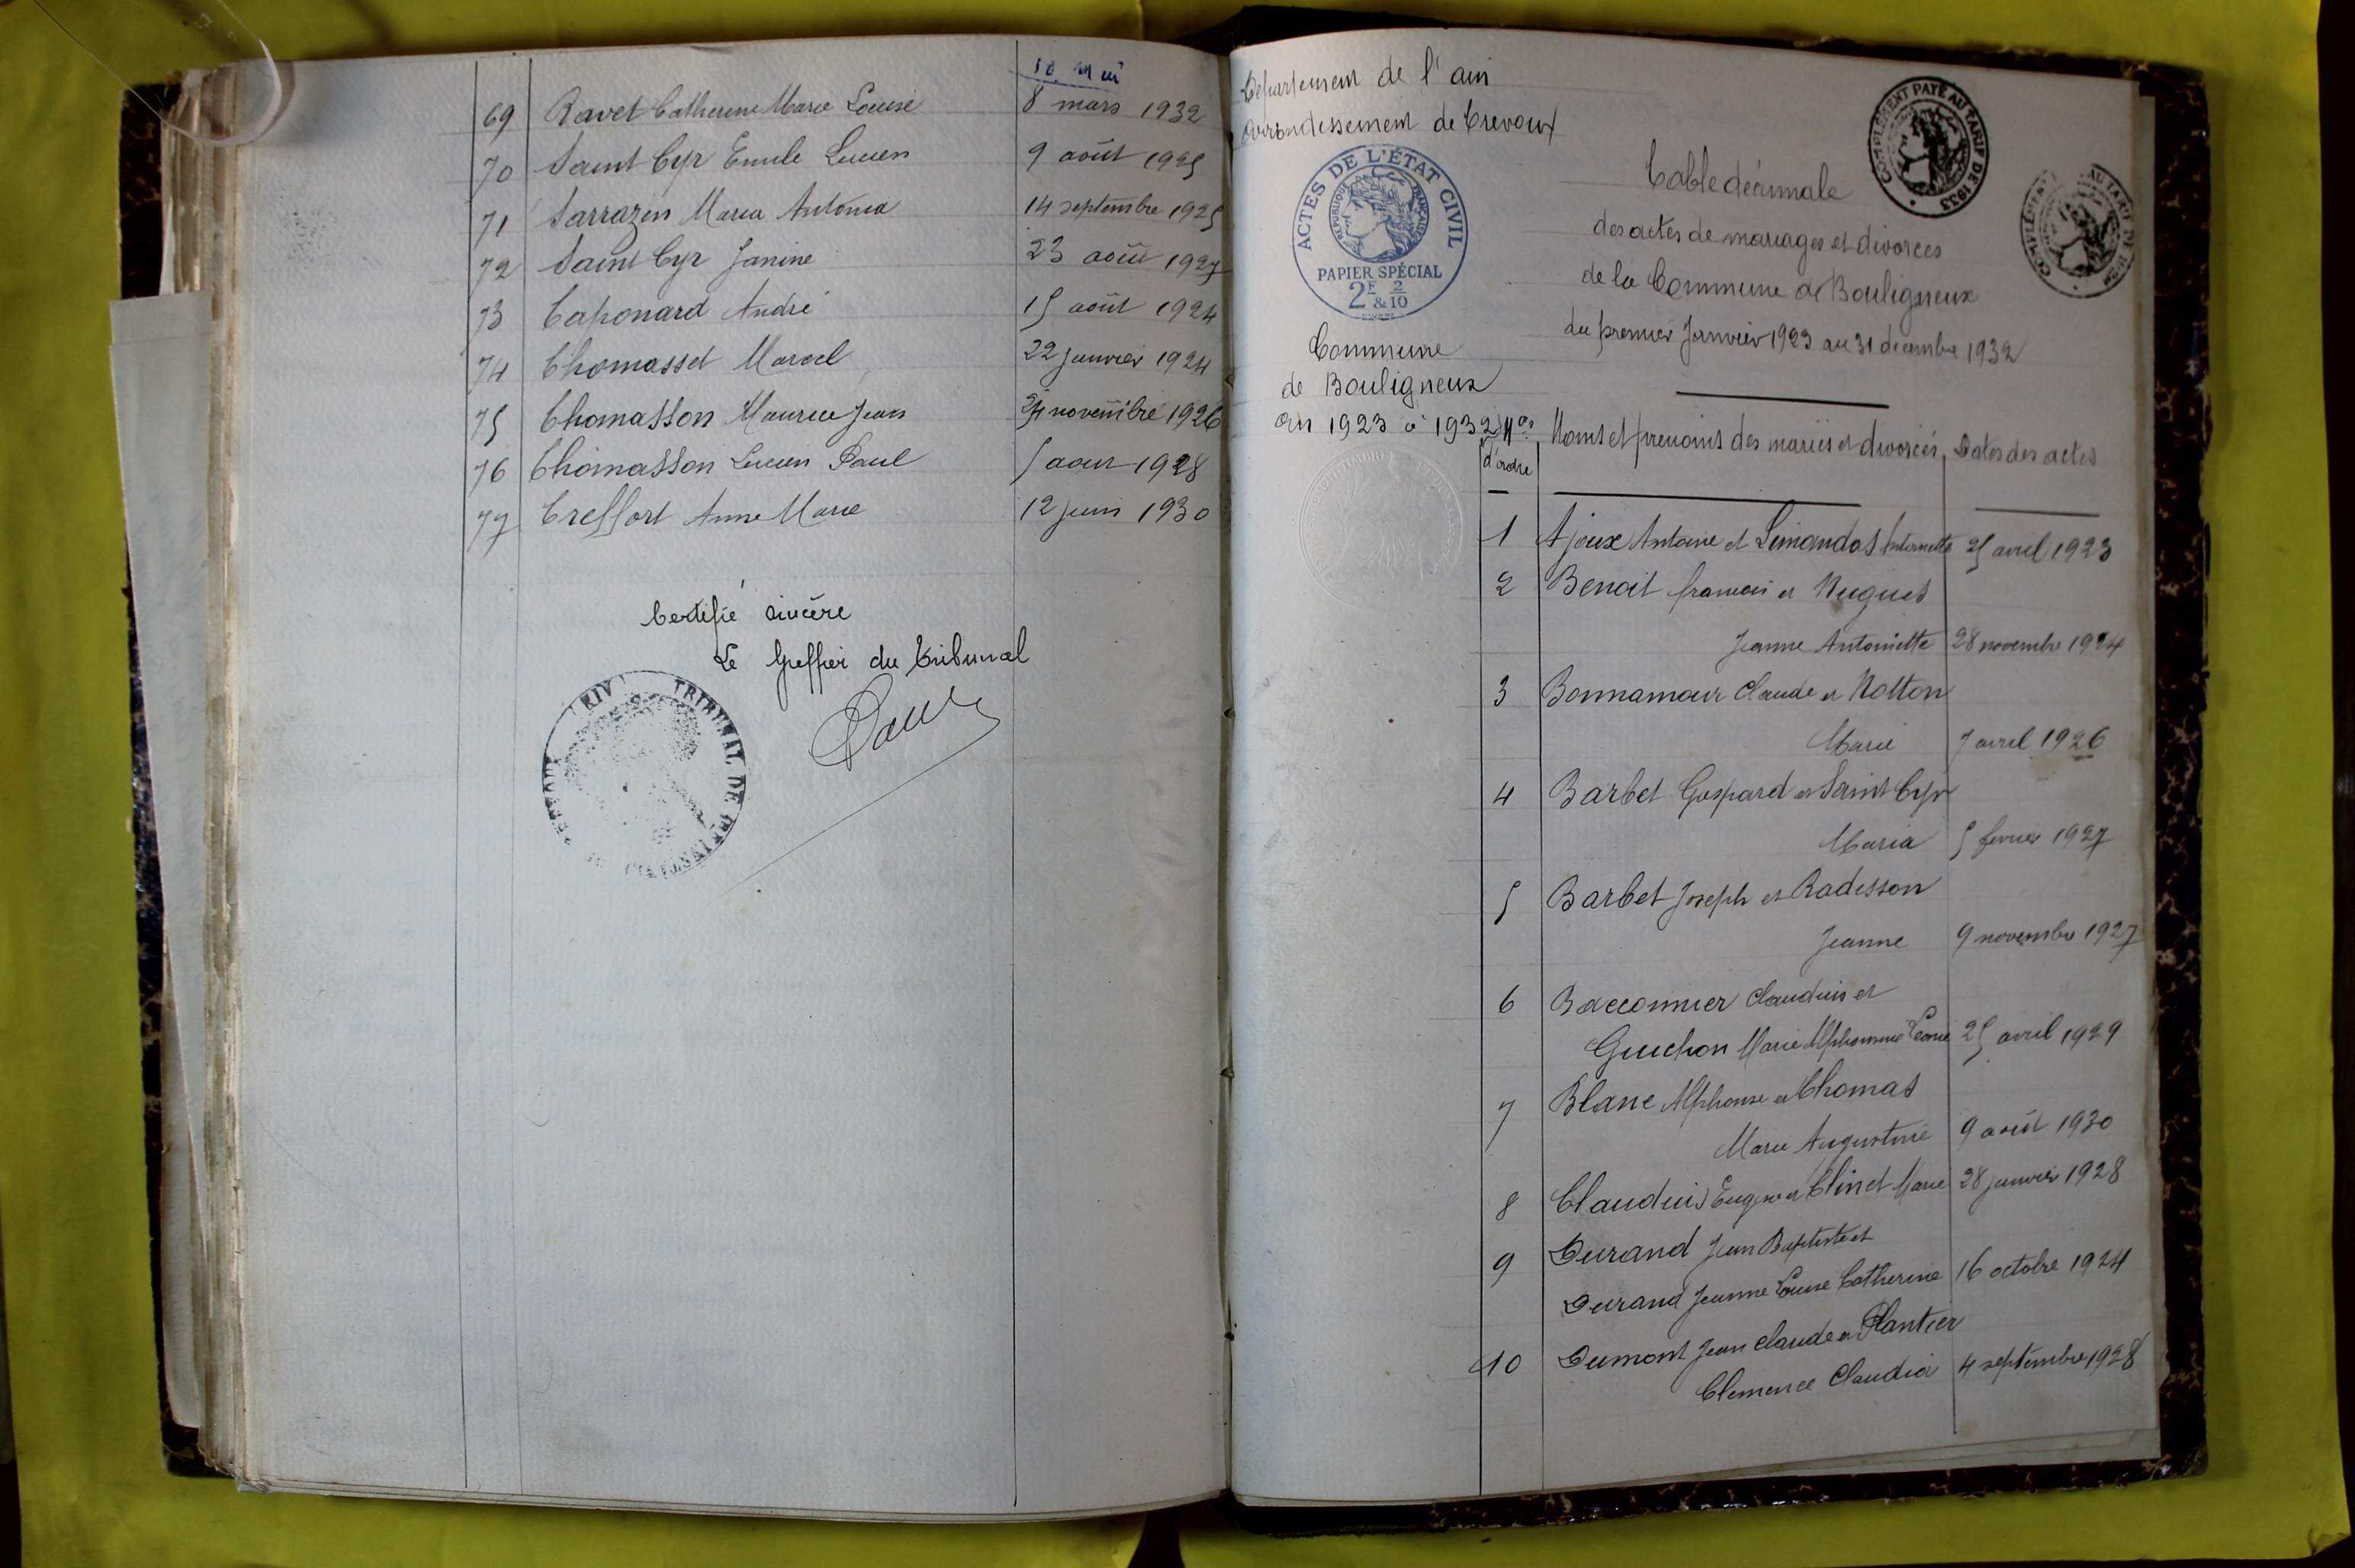 10 mai
69 Ravet Catherine Marie Louise 8 mars 1932
70 Saint Cyr Emile Lucien 9 août 1925
71 Sarrazin Maria Antonia 14 septembre 1925
72 Saint Cyr Janine 23 août 1927
73 Taponard André 15 août 1924
74 Thomasset Marcel 22 janvier 1924
75 Thomasson Maurice Jean novembre 1926
76 Thomasson Lucien Paul 5 aout 1928
77 Treffort Anne Marie 12 juin 1930
Certifié sincère
Le Greffier du Tribunal
TRIBUNAL DE
Département de l'ain
Arrondissement de Trevoux
ACTES DE L'ÉTAT CIVIL
REPUBLIQUE FRANÇAISE
PAPIER SPÉCIAL
2F 2/10
&
Commune
de Bouligneux
an 1923 à 1932
COMPLÉMENT PAYÉ AU TARIF DE 1933
COMPLÉMENT AU TARIF DE
Table décennale
des actes de mariages et divorces
de la Commune de Bouligneux
du premier Janvier 1923 au 31 décembre 1932
Nos d'ordre Noms et prenoms des mariés et divorcés Dates des actes
1 Ajoux Antoine et Limandas Antoinette 25 avril 1923
2 Benoit francois et Nugues
Jeanne Antoinette 28 novembre 1924
3 Bonnamour Claude et Notton
Marie 7 avril 1926
4 Barbet Gaspard et Saint Cyr
Maria 5 fevrier 1927
5 Barbet Joseph et Radisson
Jeanne 9 novembre 1927
6 Bacconnier Claudius et
Guichon Marie Alphonsine Leonie 25 avril 1929
7 Blanc Alphonse et Thomas
Marie Augustine 9 août 1930
8 Claudius Eugene et Clinet Marie 28 janvier 1928
9 Durand Jean Baptiste et
Durand Jeanne Louise Catherine 16 octobre 1924
10 Dumont Jean Claude et Plantier
Clemence Claudia 4 septembre 1928